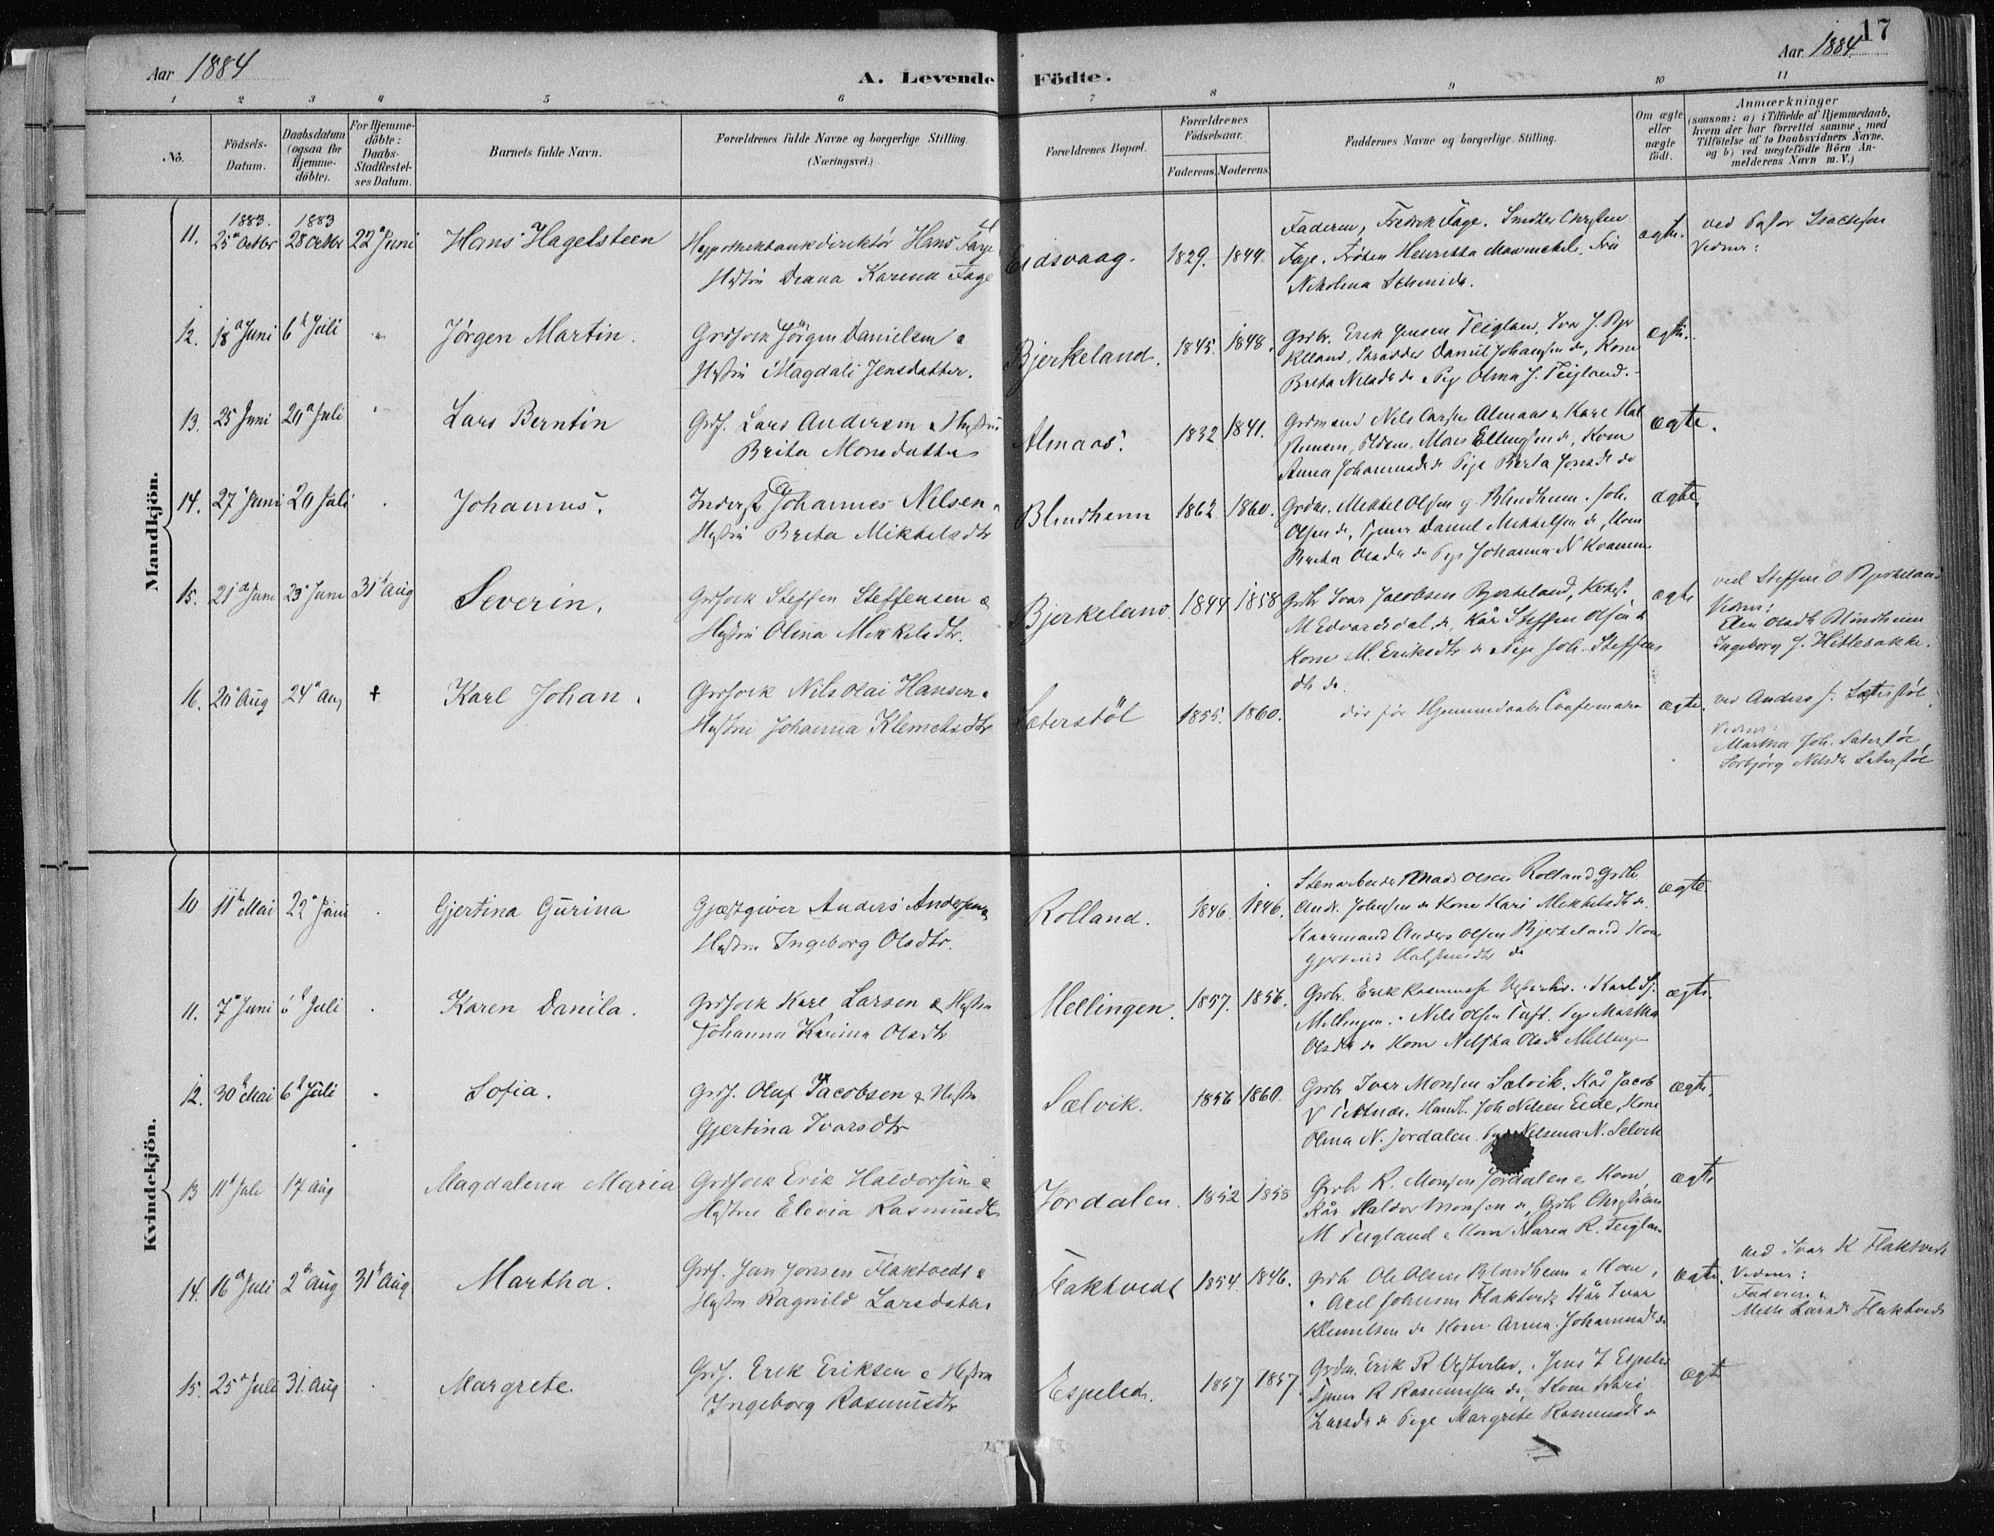 17
Aar 1884
A. Levende Födte.
Aar 1884
1 2 3 4 5 6 7 8 9 10 11
No.
Födsels-Datum.
Daabsdatum (ogsaa for Hjemme-döbte).
For Hjemme-döbte: Daabs-Stadfæstel-ses Datum.
Barnets fulde Navn.
Forældrenes fulde Navne og borgerlige Stilling. (Næringsvei.)
Forældrenes Bopæl.
Forældrenes Födselsaar.
Faderens. Moderens.
Faddernes Navne og borgerlige Stilling.
Om ægte eller uægte födt.
Anmærkninger
(saasom: a) i Tilfælde af Hjemmedaab,
hvem der har forrettet samme, med
Tilföielse af to Daabsvidners Navne.
og b) ved uægtefödte Börn An-
melderens Navn m. V.)
Mandkjön.
11. 1883. 25 Octbr 1883 28 Octbr 22 Juni Hans Hagelsteen Hypothekbankdirektör Hans Fage
Hustru Diana Karina Fage
Eidsvaag. 1829. 1844.
Faderen, Fredrik Fage. Christen
Fage. Fröken Henrietta Fru
Nikolina Schmidt.
ægte. ved Pastor Isachsen
Vidner:
12. 18 Juni 6 Juli " Jörgen Martin. Grdfork Jörgen Danielsen &
Hustru Magdali Jensdatter.
Bjerkeland. 1845. 1848.
Grdbr. Erik Jensen Teigland, Ivar J. Bjer
kelland, Daniel Johansen do, Kone
Brita Nilsdtr do Pige Olina J. Teigland.
ægte.
13. 25 Juni 20 Juli " Lars Berntin Grdf. Lars Andersen & Hustru
Brita Monsdatter
Almaas. 1832 1841.
Grdmand Nils Larsen Almaas & Karl Hal
Mons Ellingsen do, Kone
Anna Johannesdtr do Pige Berta Jonsdtr do
ægte.
14. 27 Juni 20 Juli " Johannes. Inderst Johannes Nilsen &
Hustru Brita Mikkelsdtr
Blindheim 1862 1860.
Grdm. Mikkel Olsen & Blindheim. Joh.
Olsen do, Daniel Mikkelsen do, Kone
Brita Olsdtr do Pige Johanna N Kvamme
ægte.
15. 21 Juni 23 Juni 31 Aug Severin. Grdfork Steffen Steffensen &
Hustru Olina Mikkelsdtr.
Bjerkeland 1844 1858
Grdbr Ivar Jacobsen Bjerkeland,
M Edvardsdal, do, Kår Steffen Olsen do
Kone M. Eriksdtr do Pige Joh. Steffens
dtr do.
ægte ved Steffen O Bjerkeland
Vidner:
Elen Olsdtr Blindheim
Ingeborg J. Hitlebakke.
16. 20 Aug 24 Aug † Karl Johan. Grdfork Nils Olai Hansen &
Hustru Johanna Klemetsdtr
Sæterstöl 1855. 1860.
död för Hjemmedaabs Confirmation
ægte. ved Anders J. Sæterstöl
Vidner:
Martha Joh. Sæterstöl
Nilsdtr Sæterstöl
Kvindekjön.
10 11 Mai 22 Juni " Gjertina Gurina Gjæstgiver Anders Andersen &
Hustru Ingeborg Olsdtr.
Rolland. 1846. 1846.
Stenarbeider Mads Olsen Rolland, Grdbr
Andr. Johnsen do Kone Kari Mikkelsdtr do.
Anders Olsen Bjerkeland Kone
Gjertrud Halstendtr do
ægte
11. 7 Juni 6 Juli " Karen Danila. Grdfork Karl Larsen & Hustru
Johanna Karina Olsdtr
Mellingen. 1857. 1856.
Grdbr. Erik Rasmussen Karl Sj.
Mellingen. Nils Olsen Tuft. Pige Martha
Olsdtr do Kone Olsdtr Mellingen
ægte.
12. 30 Mai 6 Juli " Sofia. Grdf. Oluf Jacobsen & Hustru
Gjertina Ivarsdtr
Sælvik. 1856 1860.
Grdbr Ivar Monsen Sælvik. Kår Jacob
Handl. Joh Nilsen Eide, Kone
Olina N. Jordalen. Pige Nilsina N. Selvik
ægte.
13 11 Juli 17 Aug Magdalena Maria Grdfork Erik Haldorsen &
Hustru Elevia Rasmusdtr
Jordalen. 1852 1858
Grdbr R. Monsen Jordalen & Kone,
Kår Haldor Monsen do, Grdbr Christian
M Teigland & Kone Maren R. Teigland
ægte
14. 16 Juli 2 Aug 31 Aug Martha. Grdf. Jan Jonsen Flaktvedt &
Hustru Ragnild Larsdatter
Flaktvedt 1854. 1846.
Grdbr Ole Olsen Blindheim & Kone,
Axel Johnsen Flaktvedt Kår Ivar
Klemetsen do Kone Anna Johannesdtr do
ægte. ved Ivar K Flaktvedt
Vidner:
Faderen &
Mette Larsdtr Flaktvedt
15. 25 Juli 31. Aug " Margrete. Grdf. Erik Eriksen & Hustru
Ingeborg Rasmusdtr
Espelid. 1857 1857.
Grdm. Erik R Jens I Espelid
R Rasmussen do, Kone Kari
Larsdtr do Pige Margrete Rasmusdtr do
ægte